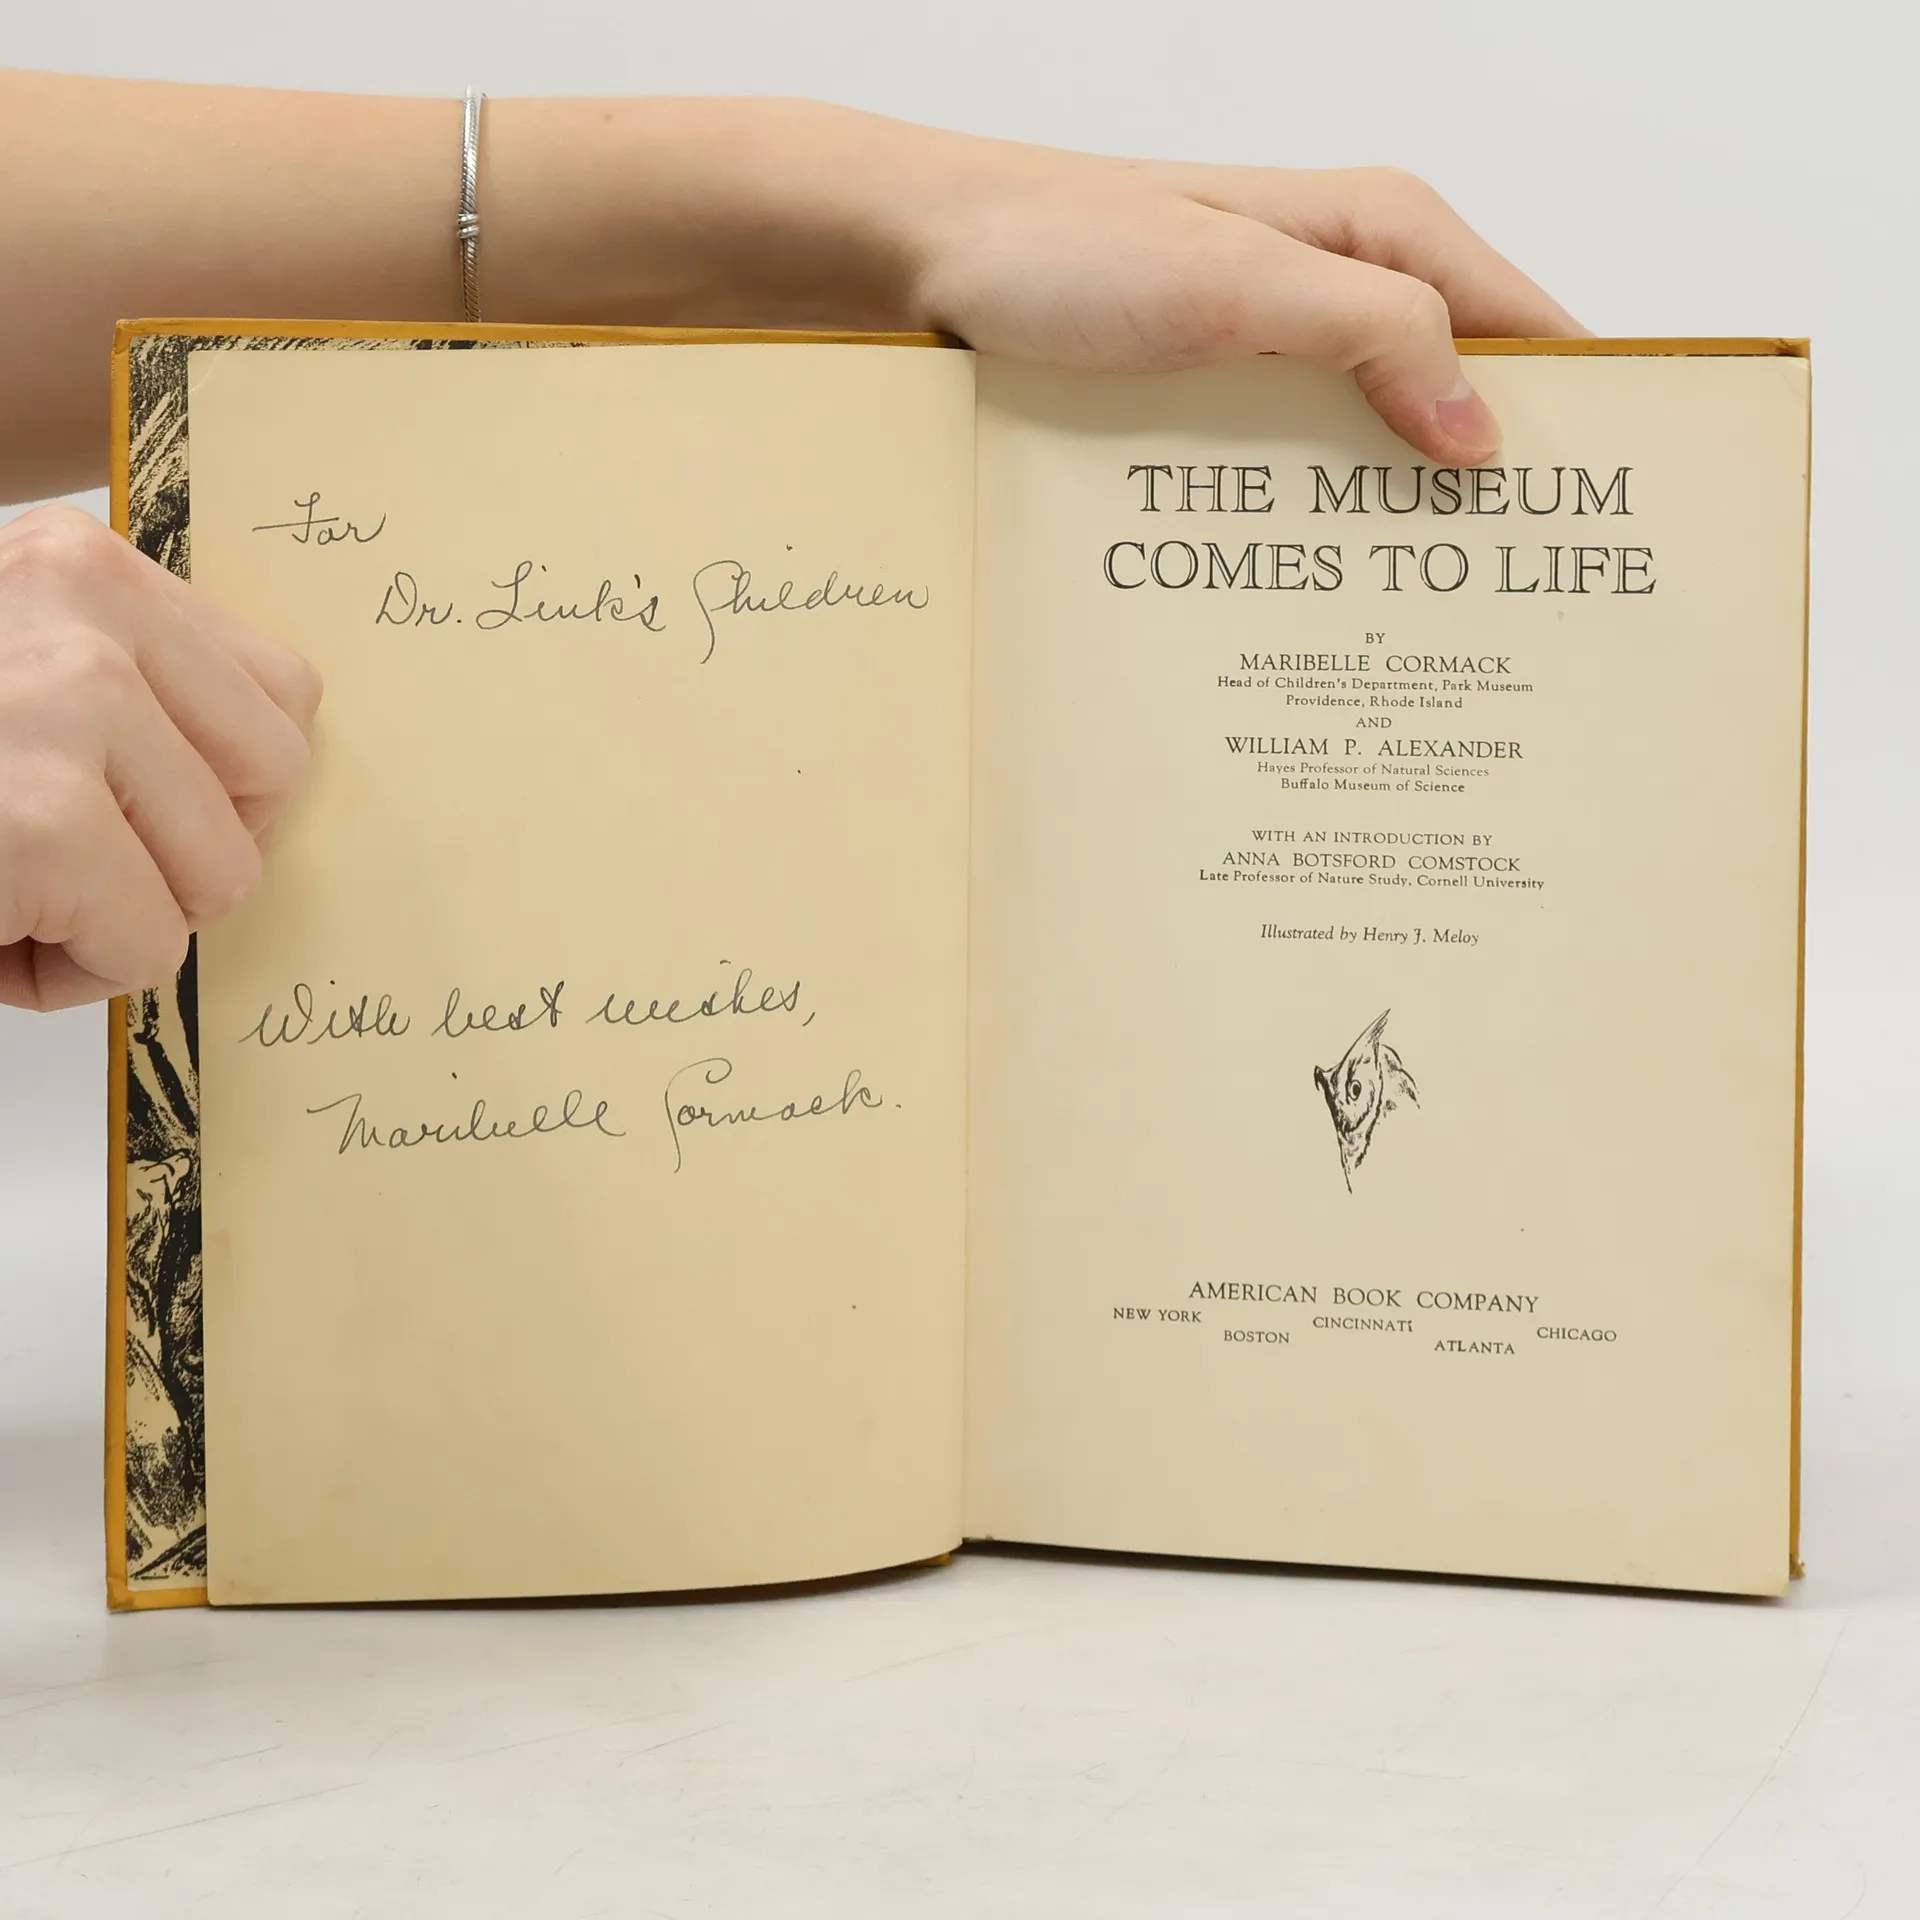 For
Dr. Link's Children
With best wishes,
Maribelle Cormack.
THE MUSEUM
COMES TO LIFE
BY
MARIBELLE CORMACK
Head of Children's Department, Park Museum
Providence, Rhode Island
AND
WILLIAM P. ALEXANDER
Hayes Professor of Natural Sciences
Buffalo Museum of Science
WITH AN INTRODUCTION BY
ANNA BOTSFORD COMSTOCK
Late Professor of Nature Study, Cornell University
Illustrated by Henry J. Meloy
AMERICAN BOOK COMPANY
NEW YORK CINCINNATI CHICAGO
BOSTON ATLANTA